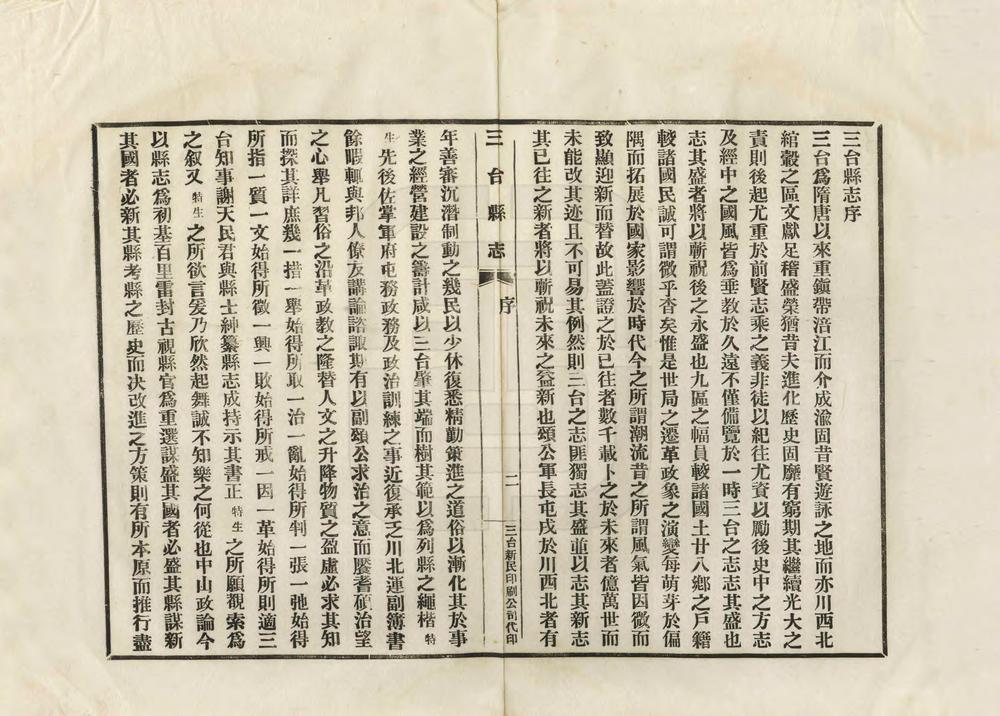 三台縣志序
三台爲隋唐以來重鎭帶涪江而介成渝固昔賢遊詠之地而亦川西北
綰轂之區文獻足稽盛榮猶昔夫進化歷史固靡有窮期其繼續光大之
責則後起尤重於前賢志乘之義非徒以紀往尤貴以勵後史中之方志
及經中之國風皆爲垂教於久遠不僅備覽於一時三台之志志其盛也
志其盛者將以蘄祝後之永盛也九區之幅員較諸國土廿八鄉之戶籍
較諸國民誠可謂微乎杳矣惟是世局之遷革政象之演變每萌芽於偏
隅而拓展於國家影響於時代今之所謂潮流昔之所謂風氣皆因微而
致顯迎新而替故此蓋證之於已往者數千載卜之於未來者億萬世而
未能改其迹且不可易其例然則三台之志匪獨志其盛並以志其新志
其已往之新者將以蘄祝未來之益新也頌公軍長屯戍於川西北者有
三台縣志 序 二 三台新民印刷公司代印
年善審沉潛制動之幾民以少休復悉精勤策進之道俗以漸化其於事
業之經營建設之籌計咸以三台肇其端而樹其範以爲列縣之繩楷特
生先後佐掌軍府屯務政務及政治訓練之事近復承乏川北運副簿書
餘暇輒與邦人僚友講論諮諏期有以副頌公求治之意而饜耆碩治望
之心舉凡習俗之沿革政教之隆替人文之升降物質之盈虛必求其知
而探其詳庶幾一措一舉始得所取一治一亂始得所判一張一弛始得
所指一質一文始得所徵一興一敗始得所戒一因一革始得所則適三
台知事謝天民君與縣士紳纂縣志成持示其書正特生之所願觀索爲
之叙又特生之所欲言爰乃欣然起舞誠不知樂之何從也中山政論今
以縣志爲初基百里雷封古視縣官爲重選謀盛其國者必盛其縣謀新
其國者必新其縣考縣之歷史而决改進之方策則有所本原而推行盡